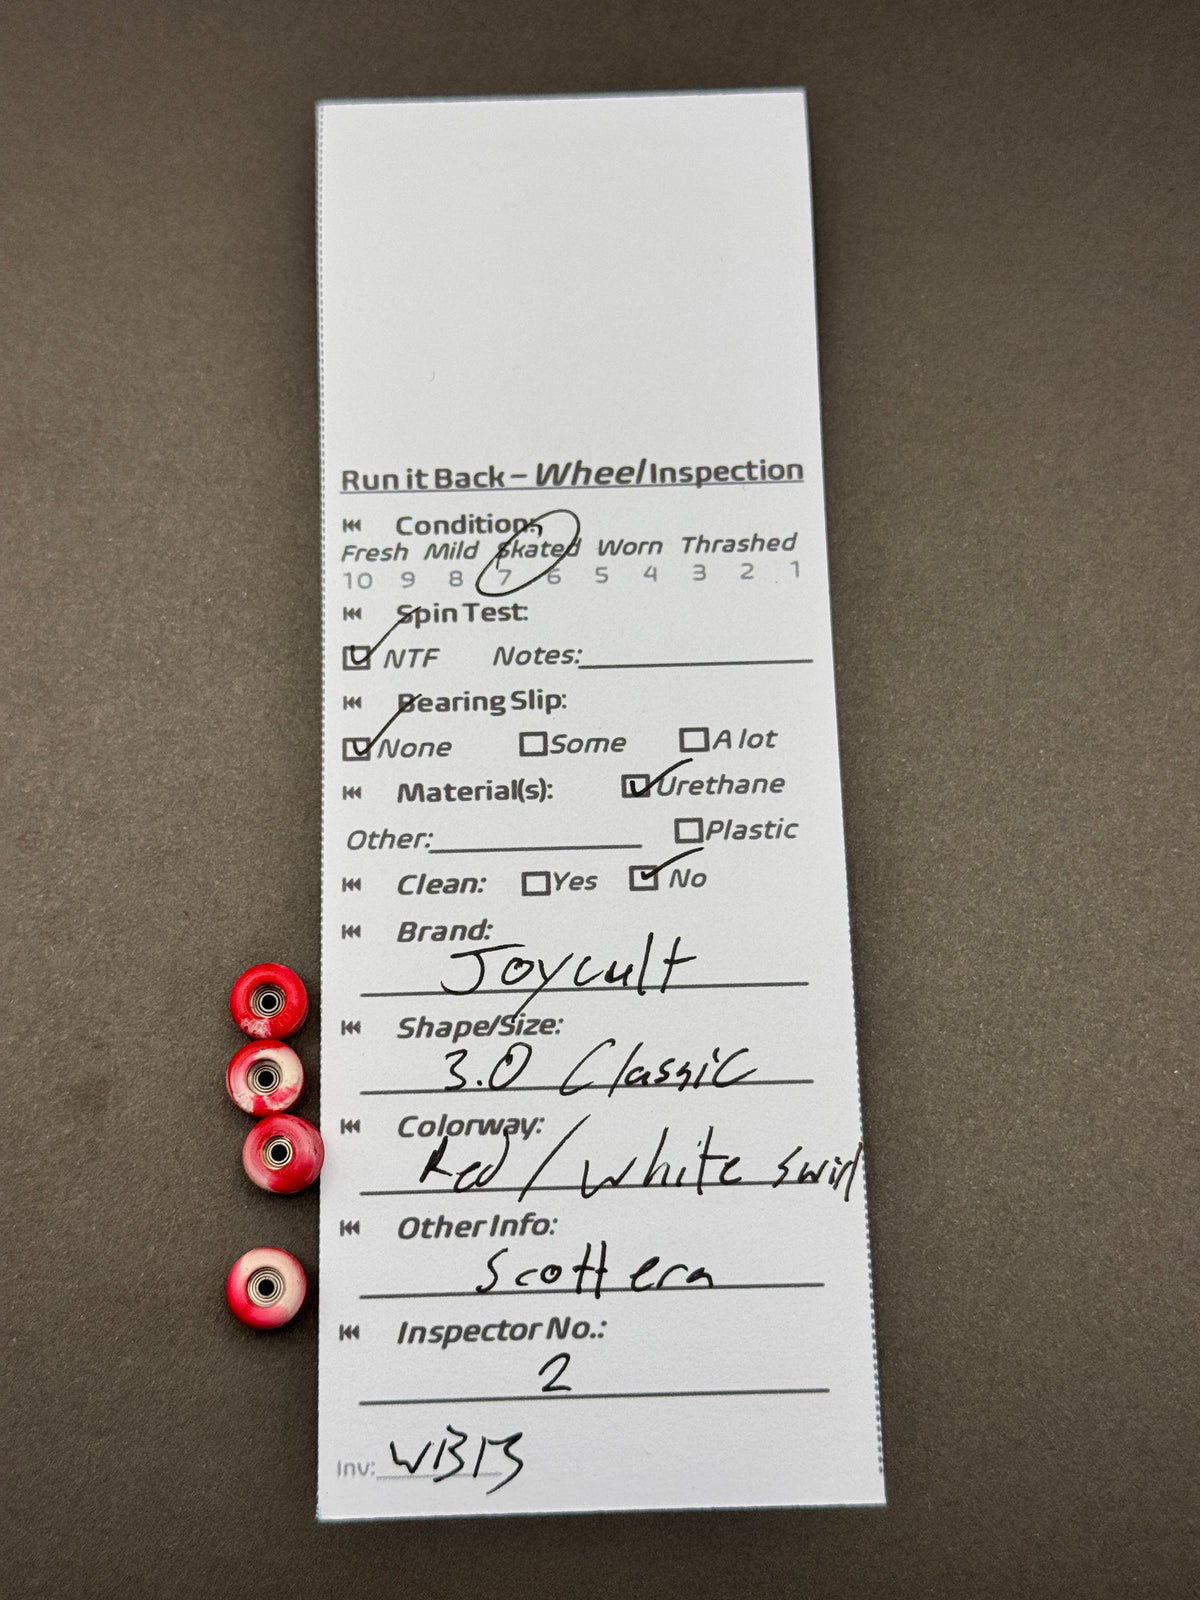 Run it Back – Wheel Inspection
Condition:
Fresh Mild Skated Worn Thrashed
10 9 8 7 6 5 4 3 2 1
Spin Test:
NTF Notes:
Bearing Slip:
None Some A lot
Material(s): Urethane
Other: Plastic
Clean: Yes No
Brand:
Joycult
Shape/Size:
3.0 Classic
Colorway:
Red / White swirl
Other Info:
Scott era
Inspector No.:
2
Inv: